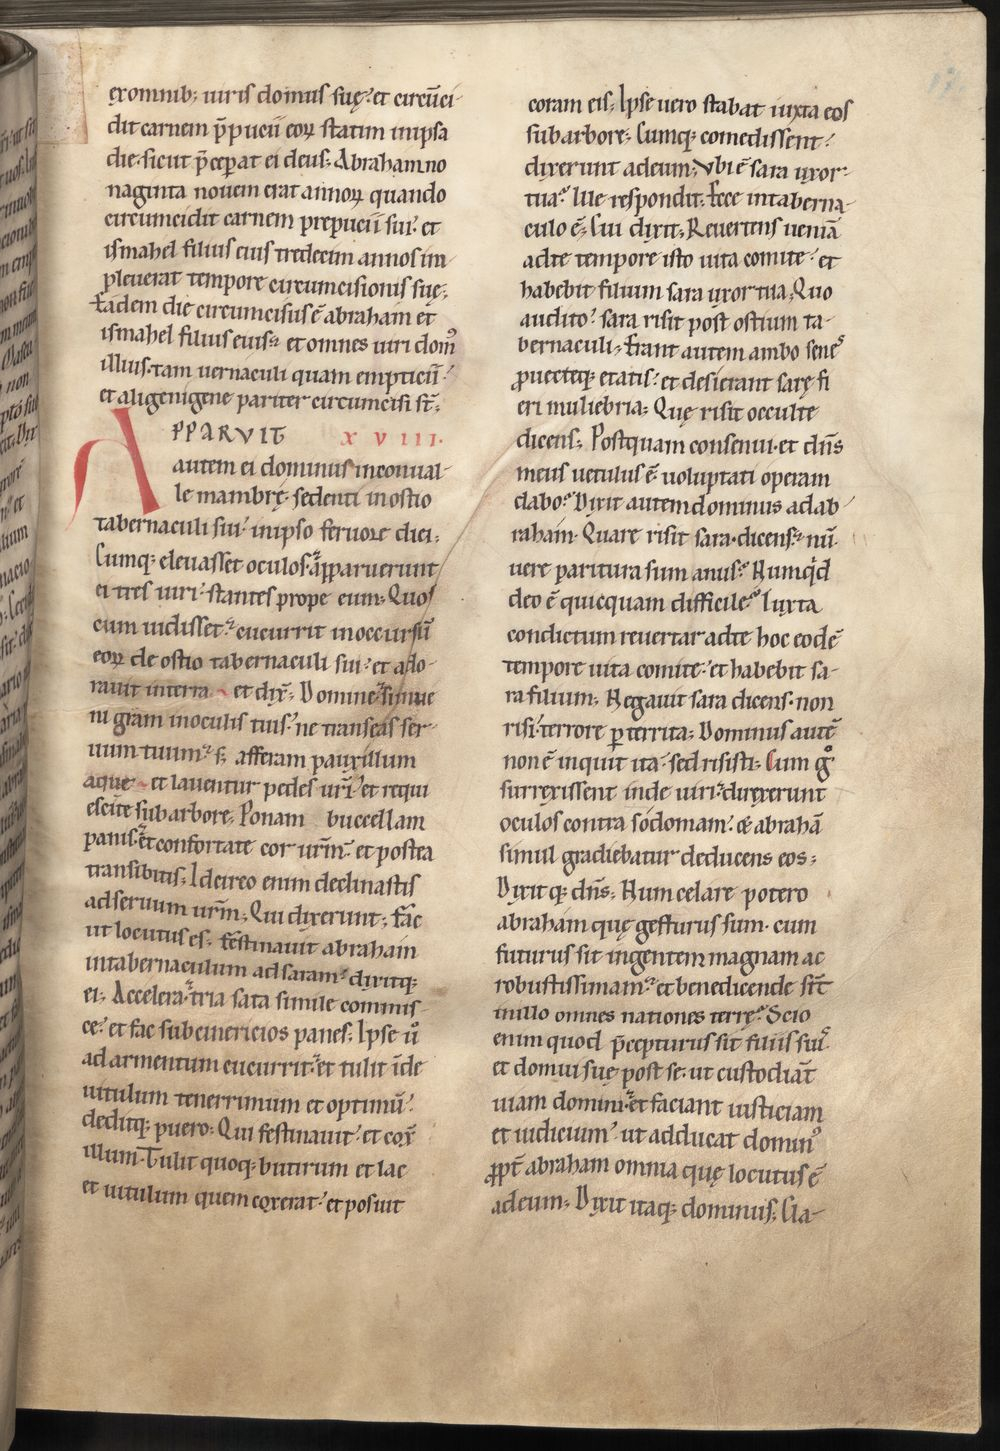 exomnib; uiris domus suę· et circūci-
dit carnem p̄pucii eoꝝ statim inipsa
die· sicut p̄cep̄at ei deus; Abraham no
naginta nouem erat annoꝝ quando
circumcidit carnem prepucii sui· et
ismahel filius eius tredecim annos im-
pleuerat tempore circumcisionis suę;
Eadem die circumcisus ē abraham et
ismahel filius eius· et omnes uiri domꝰ
illius· tam uernaculi quam empticii·
et aligenigene pariter circumcisi st̄;
APPARVIT XVIII·
autem ei dominus inconual-
le mambrę· sedenti inostio
tabernaculi sui· inipso feruore diei;
Cumq; eleuasset oculos· apparuerunt
ei tres uiri· stantes prope eum; Quos
cum uidisset· cucurrit inoccursū
eoꝝ de ostio tabernaculi sui· et ado-
rauit interra et dix̄; Domine· si inue
ni gr̄am inoculis tuis· ne transeas ser-
uum tuum· s; afferam pauxillum
aque et lauentur pedes ur̄i· et requi
escite subarbore; Ponam buccellam
panis· et confortate cor ur̄m· et postea
transibitis; Idcirco enim declinastis
adseruum ur̄m; Qui dixerunt; Fac
ut locutus es; Festinauit abraham
intabernaculum adsaram· dixitq;
ei; Accelera· tria sata simile commis-
ce· et fac subcinericios panes; Ipse ů
ad armentum cucurrit· et tulit īde
uitulum tenerrimum et optimū·
deditq; puero; Qui festinauit· et cox̄
illum; Tulit quoq; butirum et lac
et uitulum quem coxerat· et posuit
coram eis; Ipse uero stabat iuxta eos
subarbore; Cumq; comedissent·
dixerunt adeum; Vbi ē sara uxor
tua? Ille respondit; Ecce intaberna-
culo ē; Cui dixit; Reuertens ueniā
adte tempore isto uita comite· et
habebit filium sara uxor tua; Quo
audito· sara risit post ostium ta-
bernaculi; Erant autem ambo seneˢ
ꝓuecteq; etatis· et desierant sarę fi
eri muliebria; Quę risit occulte
dicens; Postquam consenui· et dn̄s
meus uetulus ē· uoluptati operam
dabo? Dixit autem dominus ad ab
raham· Quare risit sara· dicens· nū
uere paritura sum anus? Numq̇d
deo ē quicquam difficile? Iuxta
condictum reuertar adte hoc eodē
tempore uita comite· et habebit sa-
ra filium; Negauit sara dicens· non
risi· terrore ꝑterrita; Dominus autē
non ē inquit ita· sed risisti; Cum g̊
surrexissent inde uiri· direxerunt
oculos contra sodomam· & abrahā
simul gradiebatur deducens eos;
Dixitq; dn̄s; Num celare potero
abraham quę gesturus sum· cum
futurus sit ingentem magnam ac
robustissimam· et benedicende st̄
inillo omnes nationes terrę? Scio
enim quod p̄cepturus sit filiis suiˢ
et domui suę post se· ut custodiāt
uiam domini· et faciant iusticiam
et iudicium· ut adducat dominꝰ
ꝓpt̄ abraham omnia quę locutus ē
adeum; Dixit itaq; dominus; Cla-